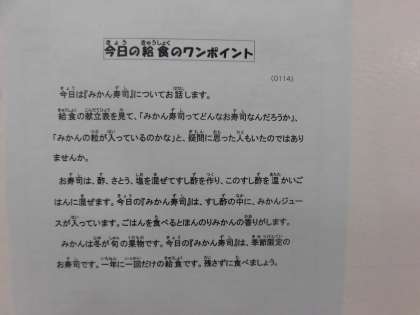 今日の給食のワンポイント
(0114)
今日は『みかん寿司』についてお話します。
給食の献立表を見て、「みかん寿司ってどんなお寿司なんだろうか」、
「みかんの粒が入っているのかな」と、疑問に思った人もいたのではあり
ませんか。
お寿司は、酢、さとう、塩を混ぜてすし酢を作り、このすし酢を温かいご
はんに混ぜます。今日の『みかん寿司』は、すし酢の中に、みかんジュー
スが入っています。ごはんを食べるとほんのりみかんの香りがします。
みかんは冬が旬の果物です。今日の『みかん寿司』は、季節限定の
お寿司です。一年に一回だけの給食です。残さずに食べましょう。